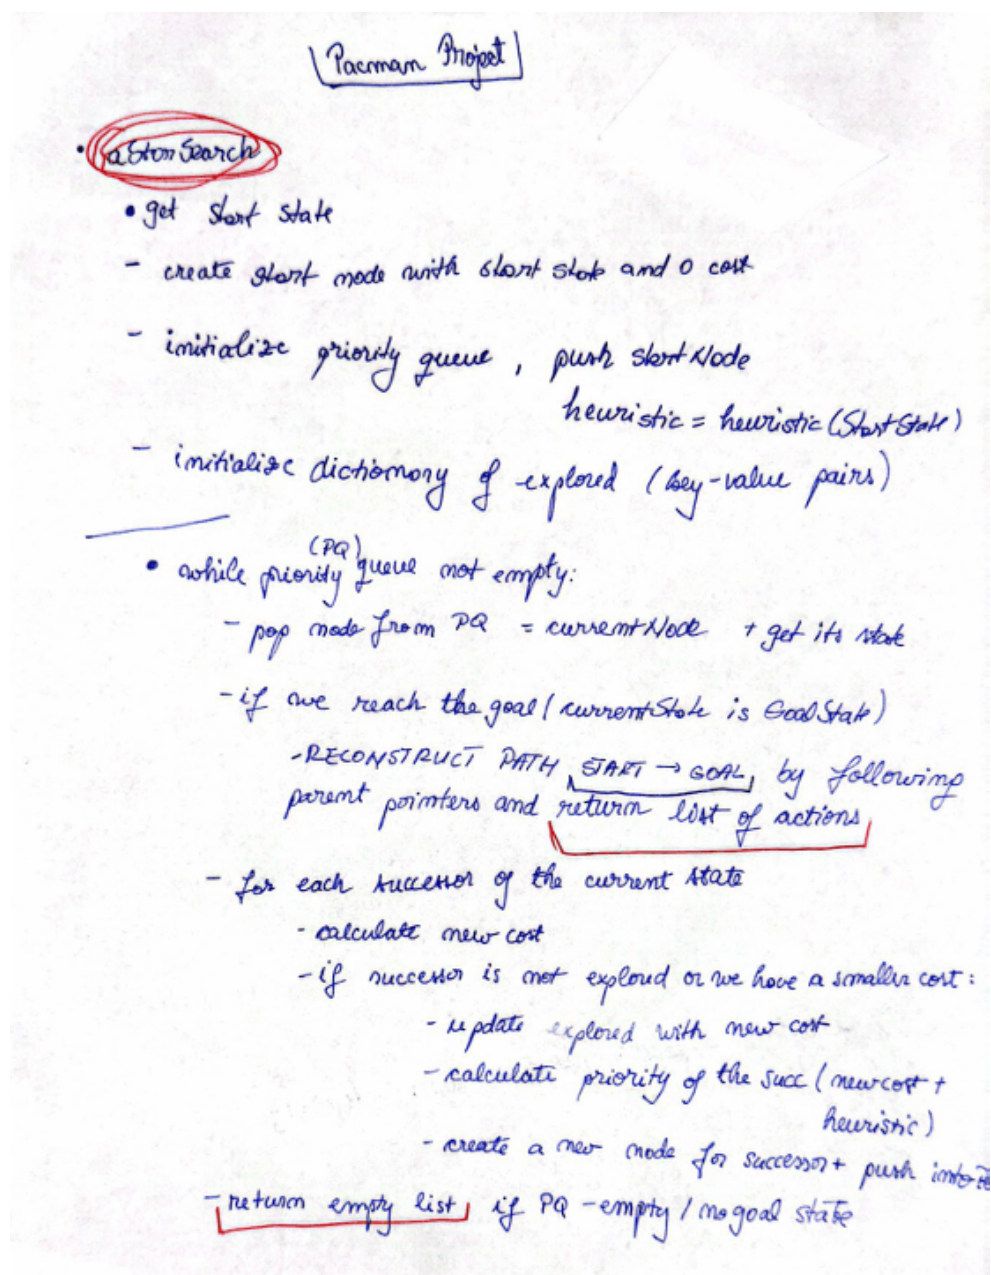 Pacman Project
• aStarSearch
• get start state
- create start node with start state and 0 cost
- initialize priority queue, push startNode
heuristic = heuristic(StartState)
- initialize dictionary of explored (key-value pairs)
(PQ)
• while priority queue not empty:
- pop node from PQ = currentNode + get its state
- if we reach the goal (currentState is GoalState)
- RECONSTRUCT PATH START → GOAL, by following
parent pointers and return list of actions
- for each successor of the current state
- calculate new cost
- if successor is not explored or we have a smaller cost:
- update explored with new cost
- calculate priority of the succ (newcost +
heuristic)
- create a new node for successor + push into
- return empty list, if PQ - empty / no goal state